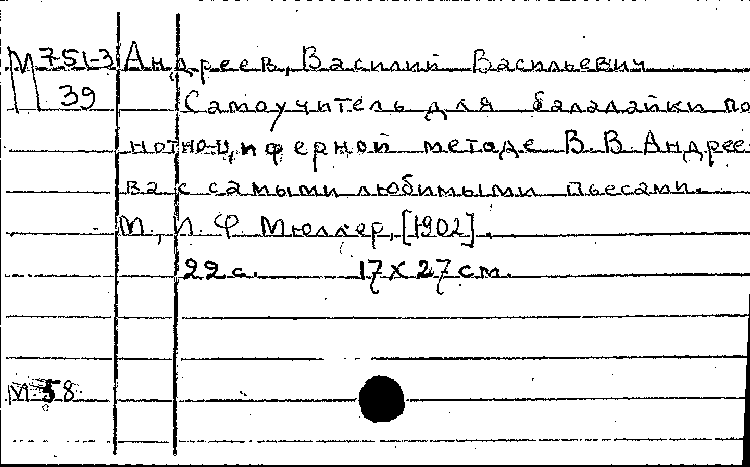 М 751-3 Андреев, Василий Васильевич
39 Самоучитель для балалайки по
нотно-циферной методе В. В Андрее-
ва с самыми любимыми пьесами.
М., П. Ф Мюллер, [1902].
22 с. 17 х 27 см.
М 58